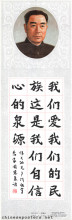 我们爱我们的民
族这是我们自信
心的泉源
chineseposters.net